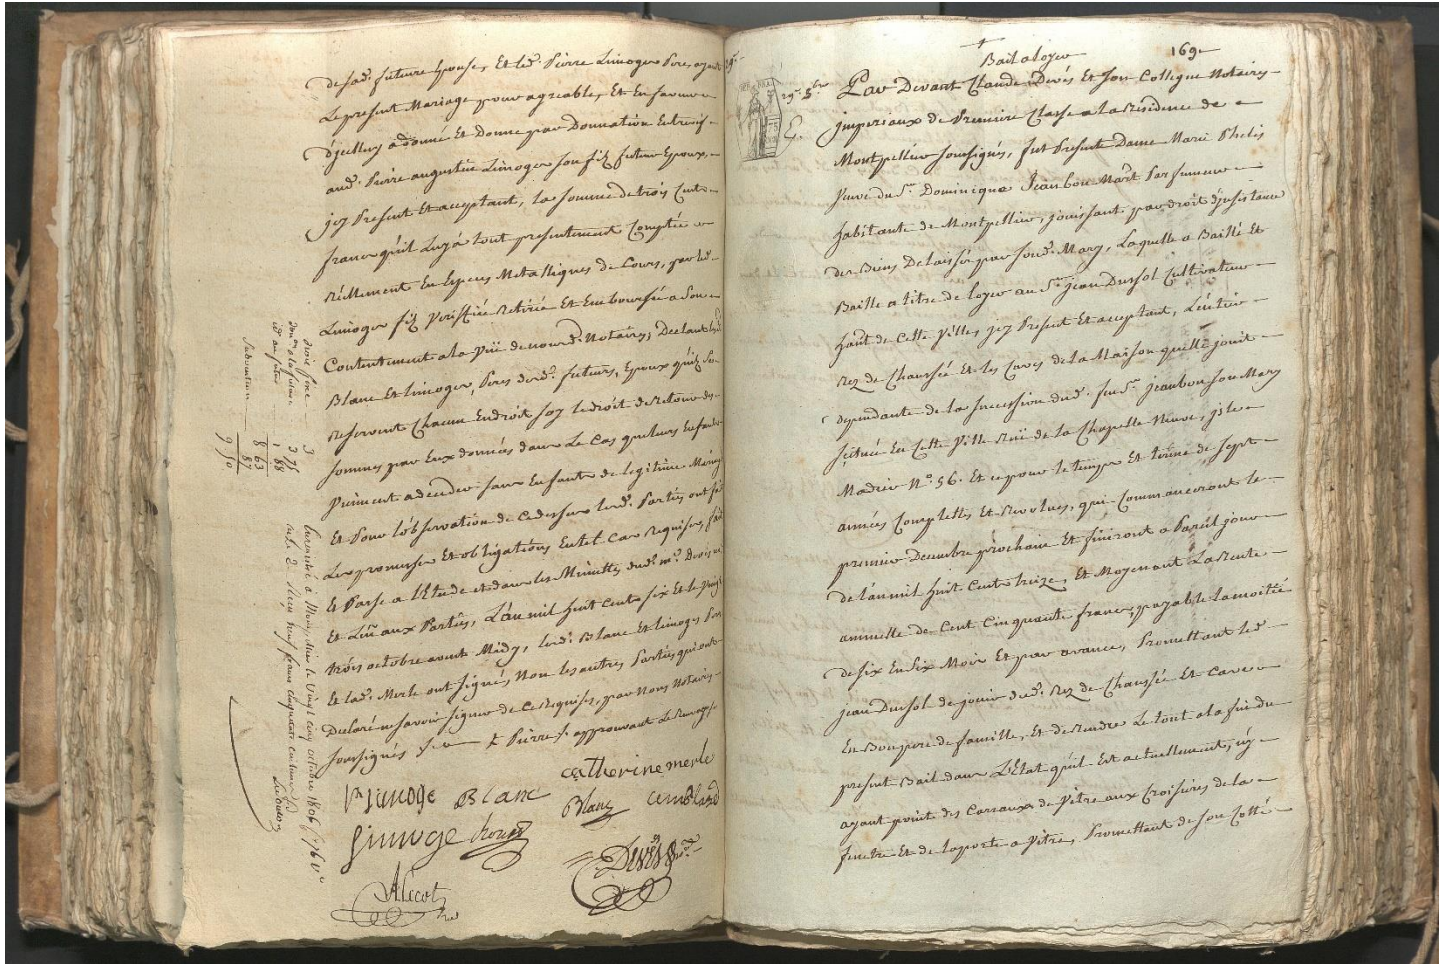 de sad. future Epouse, Et led. Pierre Limoger Pere, ayant
Le present Mariage pour agreable, Et En faveur
d'jcelluy a donné Et Donne par Donnation Entre vif
aud. Pierre augustin Limoger son fils futur Epoux,
jcy Present Et acceptant, la somme de trois Cents
francs qu'il luy a tout presentement Comptée
réellement En Especes Metalliques de Cours, par led.
Limoger fils Veriffiée Retirée Et Emboursée a Son
Contentement a la Vüe de nousd. Notaires, Declarant lesd.
Blanc et Limoger, Peres desd. futurs Epoux qu'ils se
Reservent Chacun Endroit soy le droit de Retour des
sommes par Eux données dans Le Cas que leurs Enfants
Vinssent a deceder sans Enfants de legitime Mariage
Et Pour l'observation de ce dessus lesd. Parties ont fait
Les promesses Et obligations En tel cas Requises, fait
Et Passé a l'Etude et dans les Minuttes dud. me. Devès
Et Lûu aux Parties, L'an mil huit cents six Et le Vingt
trois octobre avant Midy, lesd. Blanc Et limoger Peres
Et lad. Merle ont signés, Non les autres Parties qui ont
Declaré ne savoir signer de ce Requises, par Nous Notaires
soussignés Pierre approuvant le Renvoy
catherine merle
limoge Blanc
Blanc
Limoge
Devès
Alicot
droit fixe 3
don a la future 3 75
id au futur 1 88
8 63
Subvention 87
9 50
Enregistré à Montpellier le Vingt cinq octobre 1806
Reçu neuf francs cinquante centimes
169
Bail a loyer
29. 8bre
Par Devant Claude Devès Et son Collegue Notaires
jmperiaux de Premiere Classe a la Résidence de
Montpellier soussignés, fut Presente Dame Marie Phelis
Veuve du Sr. Dominique Jeanbon Mart. Parfumeur
habitante de Montpellier, jouissant par droit d'jnsistance
des Biens Delaissés par sond. Mary, Laquelle a Baillé Et
Baille a titre de loyer au Sr. jean Dussol Cultivateur
habt. de Cette Ville, jcy Present Et acceptant, L'entier
Rez de Chaussée Et les Caves de la Maison qu'elle jouit
dependante de la succession dud. feu Sr. Jeanbon son Mary
scituée En Cette Ville Rüe de la Chapelle Neuve, jsle
Madier No. 56. Et ce pour le temps Et terme de sept
années Complettes Et Revolues, qui Commanceront le
premier Decembre prochain Et finiront a Pareil jour
de l'an mil huit Cents treize, Et Moyenant La Rente
annuelle de Cent Cinquante francs, payable la moitié
de six En six Mois Et par avance, Promettant led.
jean Dussol de jouir dud. Rez de Chaussée Et Cave
En Bon pere de famille, Et de Rendre Le tout a la fin du
present Bail dans L'Etat qu'il Est actuellement, n'y
ayant point de Carraux de Vitre aux Croisieres de la
fenetre Et de la porte a Vitre, Promettant de son Cotté